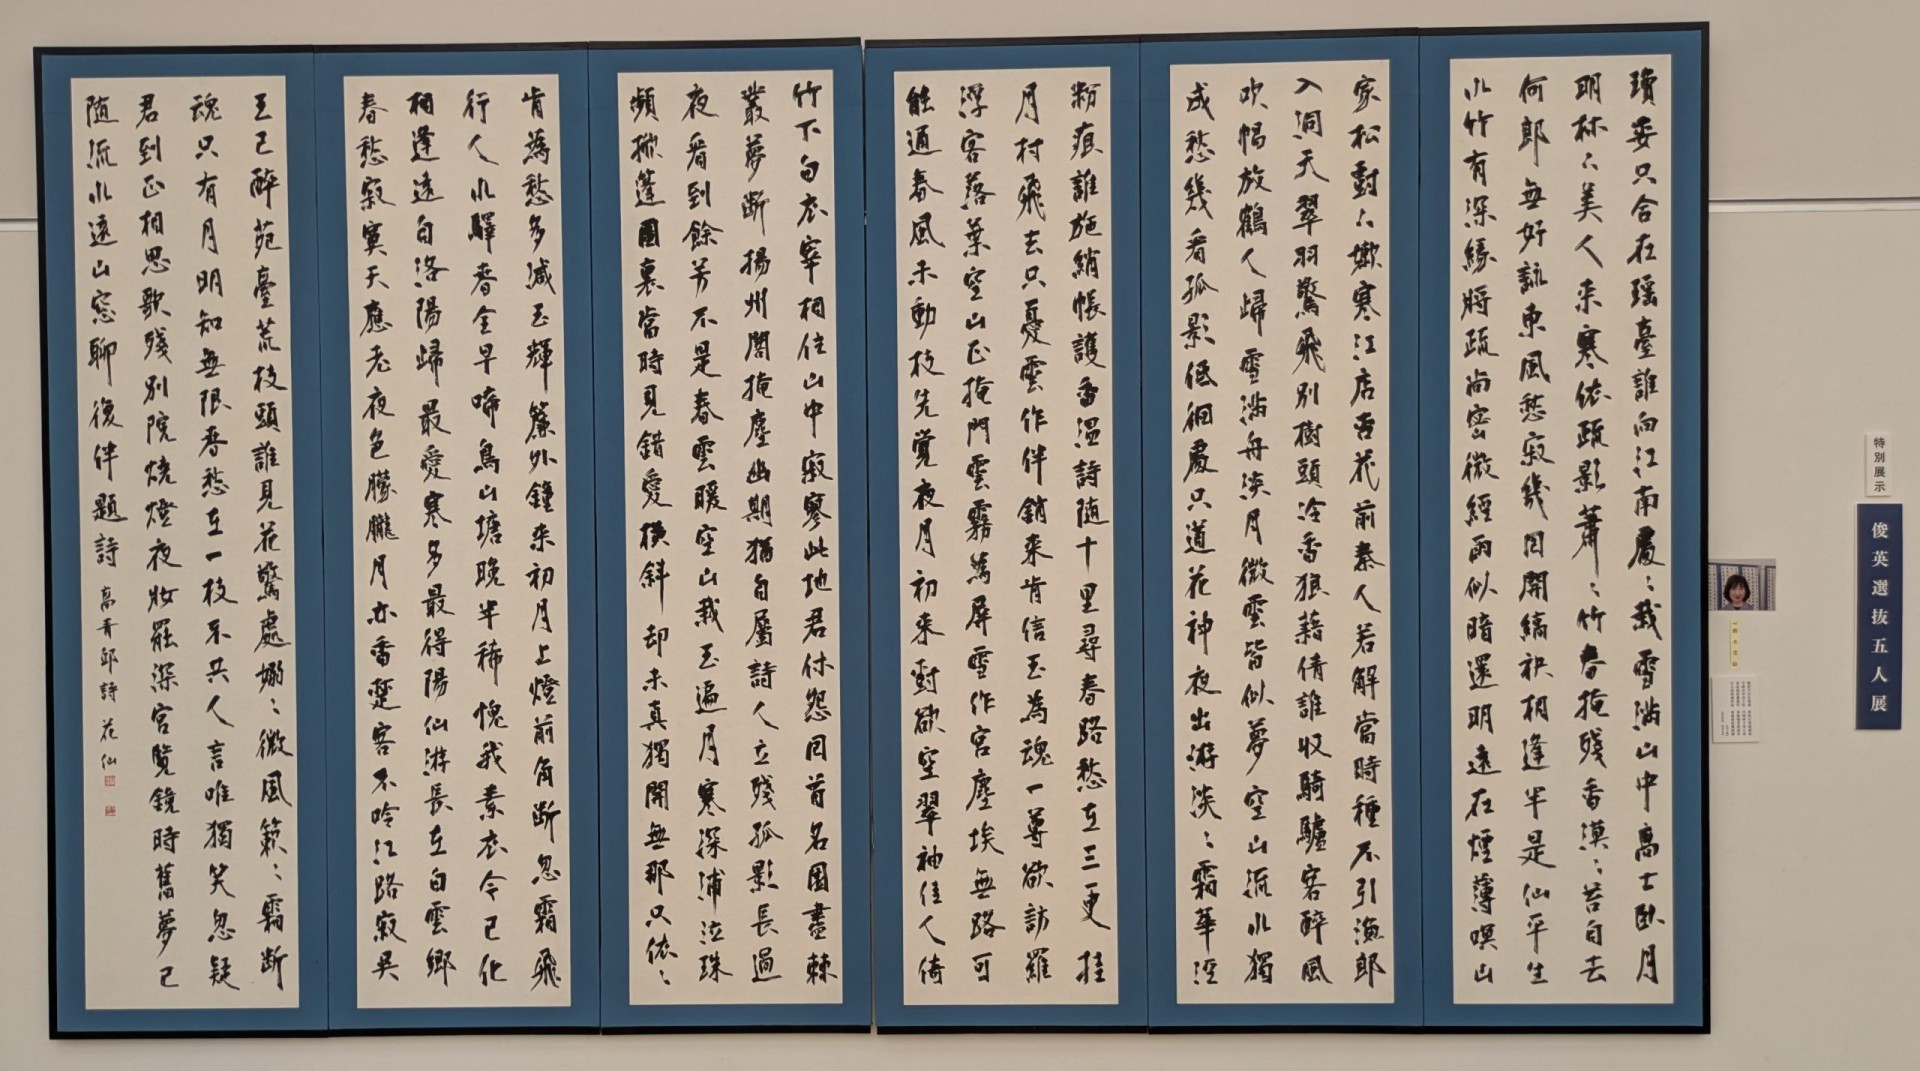 瓊姿只合在瑤臺誰向江南處〻栽雪滿山中高士臥月
明林下美人来寒依疏影蕭〻竹春掩殘香漠〻苔自去
何郎無好詠東風愁寂幾回開縞袂相逢半是仙平生
水竹有深緣將疏尚密微經雨似暗還明遠在煙薄暝山
家松樹下嫩寒江店杏花前秦人若解當時種不引漁郎
入洞天翠羽驚飛別樹頭冷香狼藉倩誰收騎驢客醉風
吹帽放鶴人歸雪滿舟淡月微雲皆似夢空山流水獨
成愁幾看孤影低徊處只道花神夜出游淡〻霜華溼
粉痕誰施綃帳護香温詩隨十里尋春路愁在三更挂
月村飛去只憂雲作伴銷来肯信玉為魂一尊欲訪羅
浮客落葉空山正掩門雲霧為屏雪作宮塵埃無路可
能通春風未動枝先覺夜月初来樹欲空翠袖佳人倚
竹下白衣宰相住山中寂寥此地君休怨回首名園盡棘
叢夢斷揚州閣掩塵幽期猶自屬詩人立殘孤影長過
夜看到餘芳不是春雲暖空山栽玉遍月寒深浦泣珠
頻掀篷圖裏當時見錯愛橫斜却未真獨開無那只依〻
肯為愁多減玉輝簾外鐘来初月上燈前角斷忽霜飛
行人水驛春全早啼鳥山塘晚半稀愧我素衣今已化
相逢遠自洛陽歸最愛寒多最得陽仙游長在白雲鄉
春愁寂寞天應老夜色朦朧月亦香楚客不吟江路寂吳
王已醉苑臺荒枝頭誰見花驚處嫋〻微風簌〻霜断
魂只有月明知無限春愁在一枝不共人言唯獨笑忽疑
君到正相思歌殘別院燒燈夜妝罷深宮覽鏡時舊夢已
随流水遠山窓聊復伴題詩 高青邱詩 花仙
特別展示
俊英選抜五人展